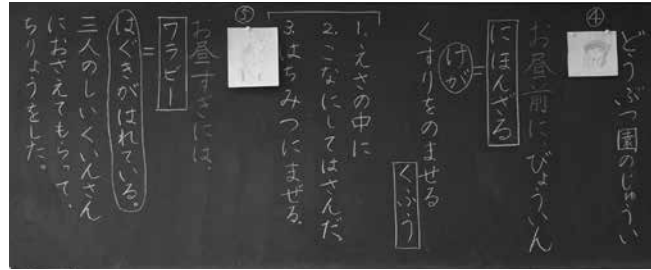 どうぶつ園のじゅうい
④
お昼前に、びょういん
にほんざる
=
けが
くすりをのませる
くふう
1.えさの中に
2.こなにしてはさんだ
3.はちみつにまぜる。
⑤
お昼すぎには、
ワラビー
=
はぐきがはれている。
三人のしいくいんさん
におさえてもらって、
ちりょうをした。